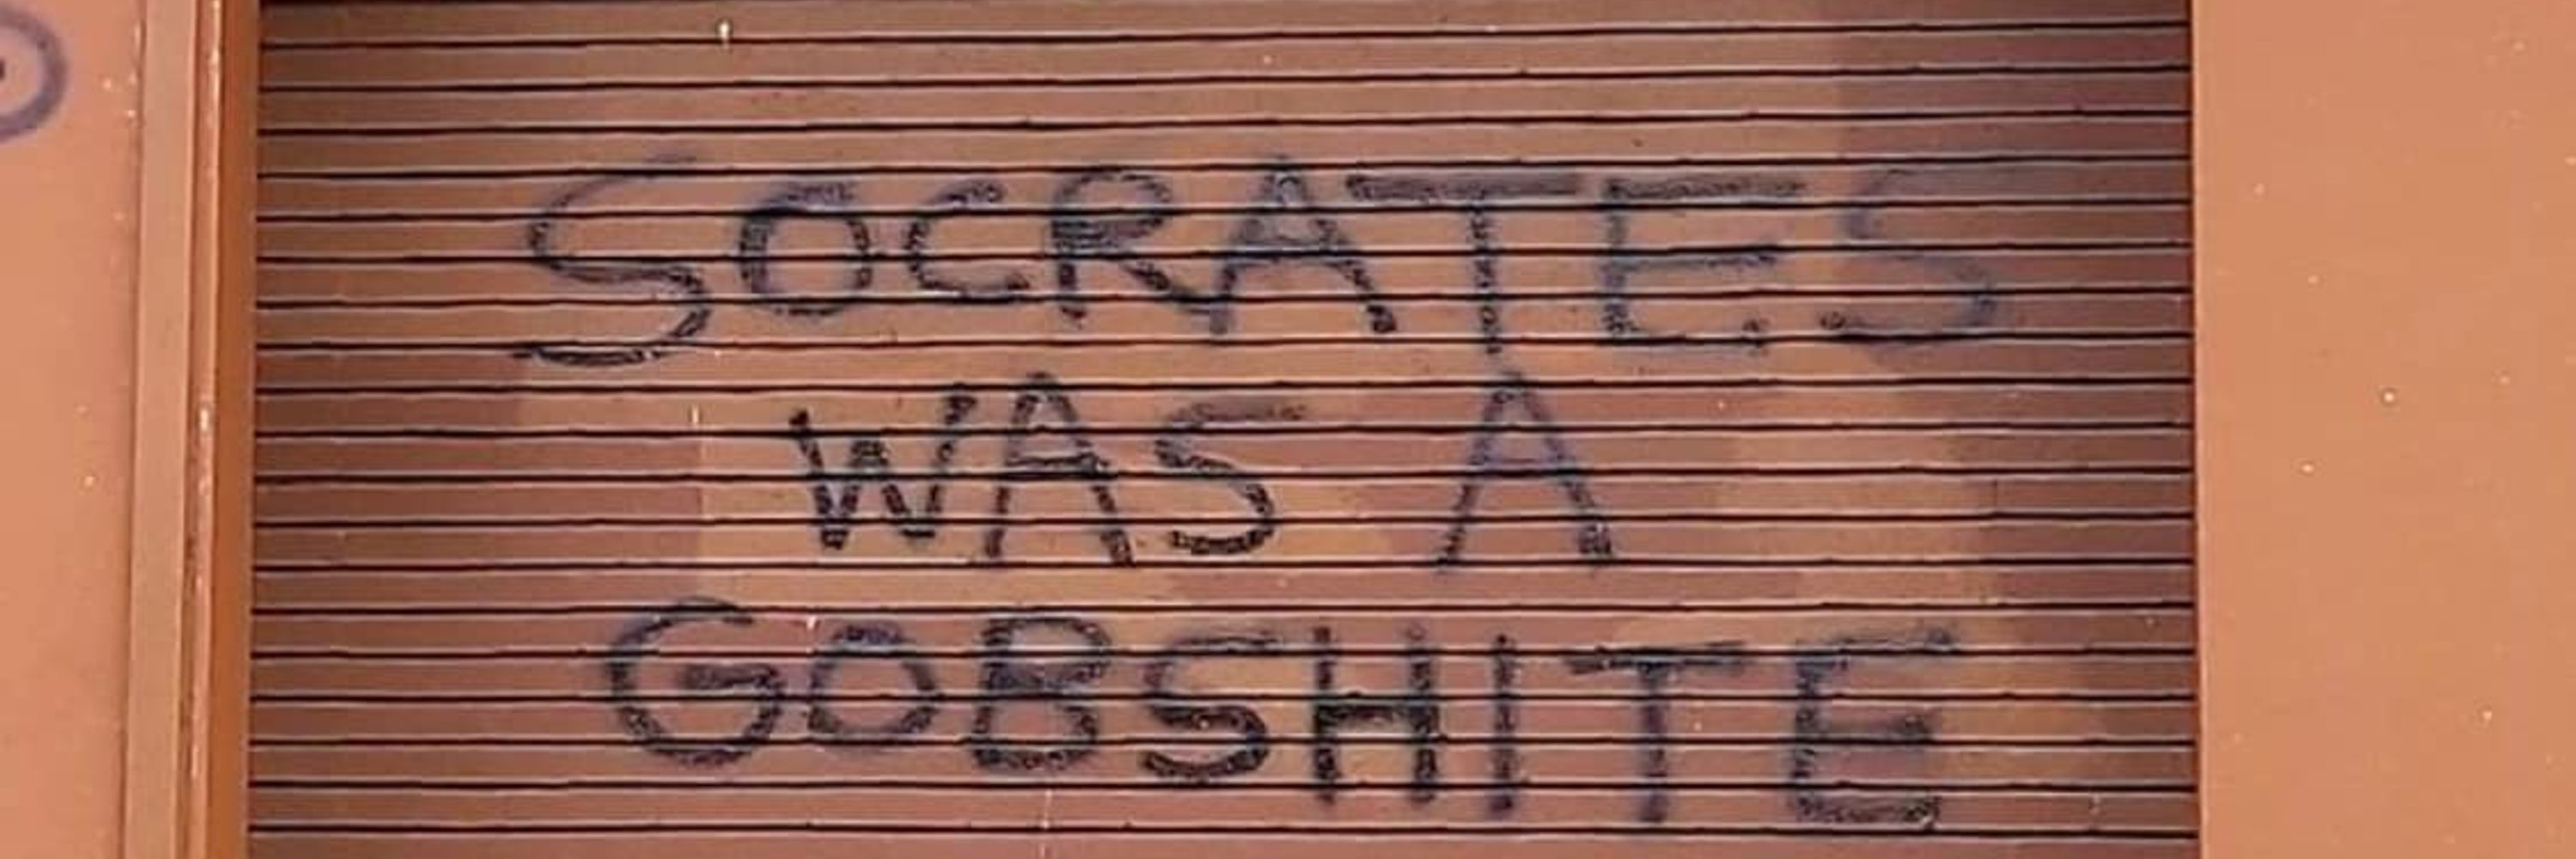 SOCRATES
WAS A
GOBSHITE